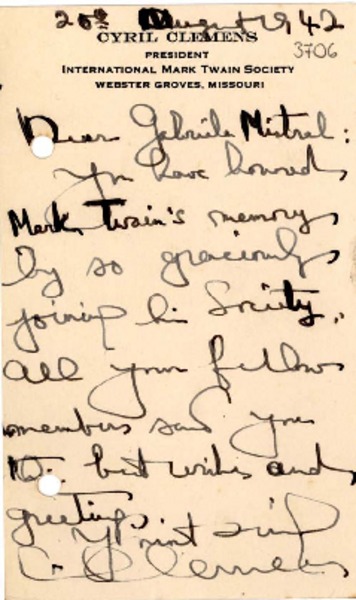 20th August 1942
CYRIL CLEMENS
3706
PRESIDENT
INTERNATIONAL MARK TWAIN SOCIETY
WEBSTER GROVES, MISSOURI
Dear Gabriela Mistral:
You have honored
Mark Twain's memory
by so graciously
joining his Society.
All your fellow
members send you
best wishes and
greetings.
C Clemens